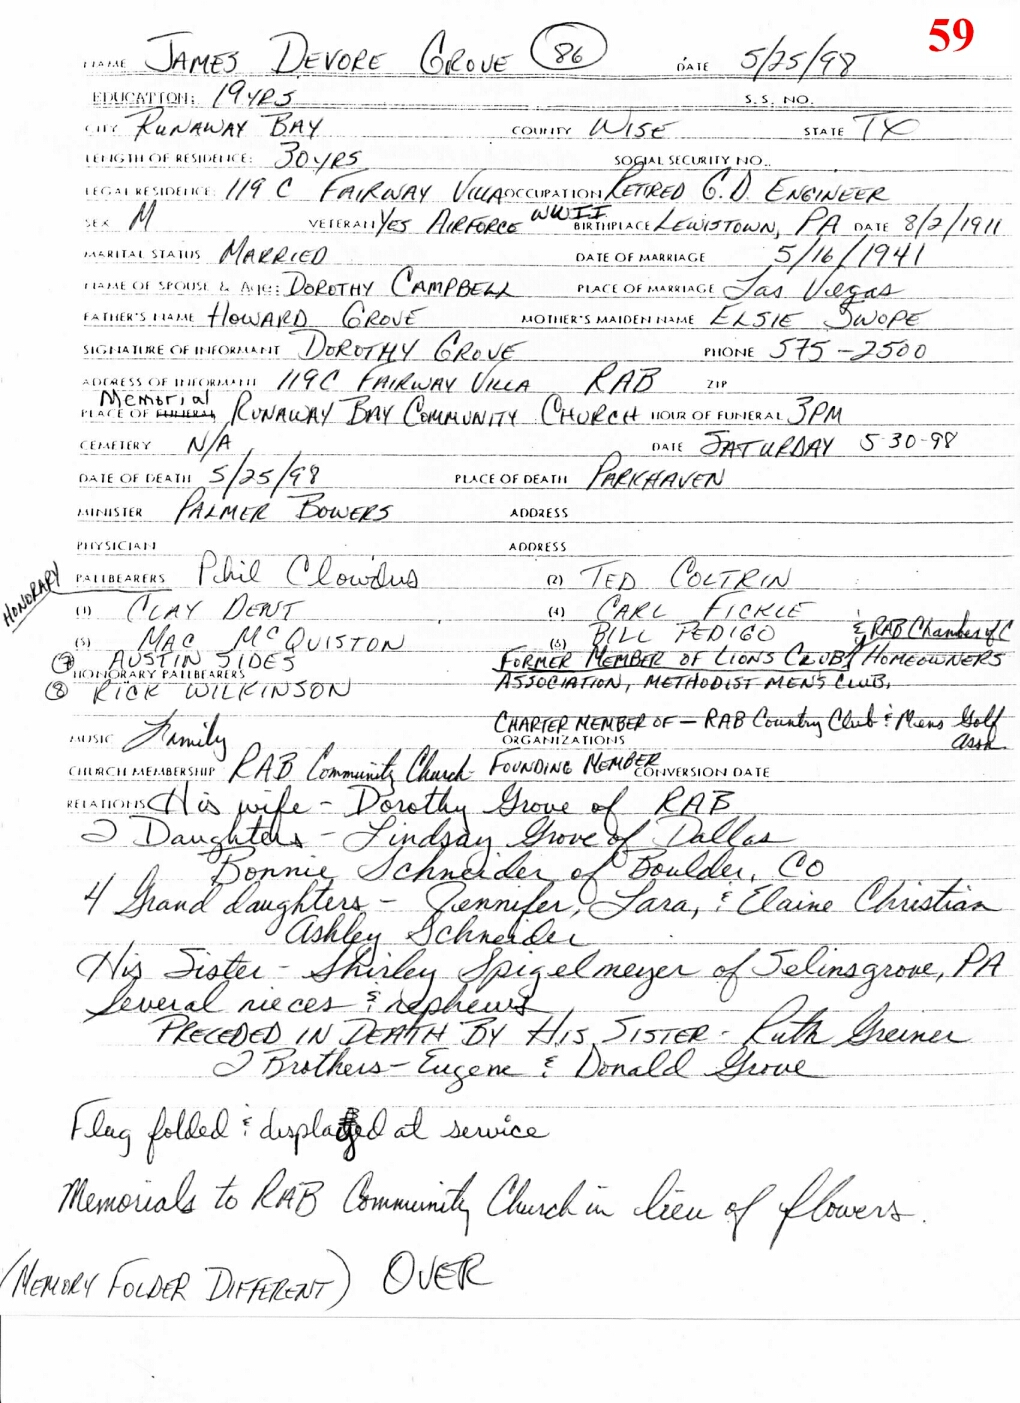 59
NAME JAMES DEVORE GROVE 86 DATE 5/25/98
EDUCATION: 19 YRS S.S. NO.
CITY RUNAWAY BAY COUNTY WISE STATE TX
LENGTH OF RESIDENCE: 30 YRS SOCIAL SECURITY NO..
LEGAL RESIDENCE: 119 C FAIRWAY VILLA OCCUPATION RETIRED G.D. ENGINEER
SEX M VETERAN YES AIRFORCE WWII BIRTHPLACE LEWISTOWN, PA DATE 8/2/1911
MARITAL STATUS MARRIED DATE OF MARRIAGE 5/16/1941
NAME OF SPOUSE & Age: DOROTHY CAMPBELL PLACE OF MARRIAGE Las Vegas
FATHER'S NAME HOWARD GROVE MOTHER'S MAIDEN NAME ELSIE SWOPE
SIGNATURE OF INFORMANT DOROTHY GROVE PHONE 575-2500
ADDRESS OF INFORMANT 119C FAIRWAY VILLA RAB ZIP
Memorial
PLACE OF FUNERAL RUNAWAY BAY COMMUNITY CHURCH HOUR OF FUNERAL 3PM
CEMETERY N/A DATE SATURDAY 5-30-98
DATE OF DEATH 5/25/98 PLACE OF DEATH PARKHAVEN
MINISTER PALMER BOWERS ADDRESS
PHYSICIAN ADDRESS
HONORARY PALLBEARERS Phil Clowdus (2) TED COLTRIN
(3) CLAY DENT (4) CARL FICKLE
(5) MAC McQUISTON (6) BILL PEDIGO & RAB Chamber of C
(7) AUSTIN SIDES FORMER MEMBER OF LIONS CLUB, HOMEOWNERS
HONORARY PALLBEARERS
(8) RICK WILKINSON ASSOCIATION, METHODIST MEN'S CLUB,
CHARTER MEMBER OF - RAB Country Club & Mens Golf
MUSIC Family ORGANIZATIONS Assn
CHURCH MEMBERSHIP RAB Community Church - FOUNDING MEMBER CONVERSION DATE
RELATIONS His wife - Dorothy Grove of RAB
2 Daughters - Lindsay Grove of Dallas
Bonnie Schneider of Boulder, CO
4 Grand daughters - Jennifer, Lara, & Elaine Christian
Ashley Schneider
His Sister - Shirley Spigelmeyer of Selinsgrove, PA
Several nieces & nephews
PRECEDED IN DEATH BY HIS SISTER - Ruth Greiner
2 Brothers - Eugene & Donald Grove
Flag folded & displayed at service
Memorials to RAB Community Church in lieu of flowers.
(MEMORY FOLDER DIFFERENT) OVER